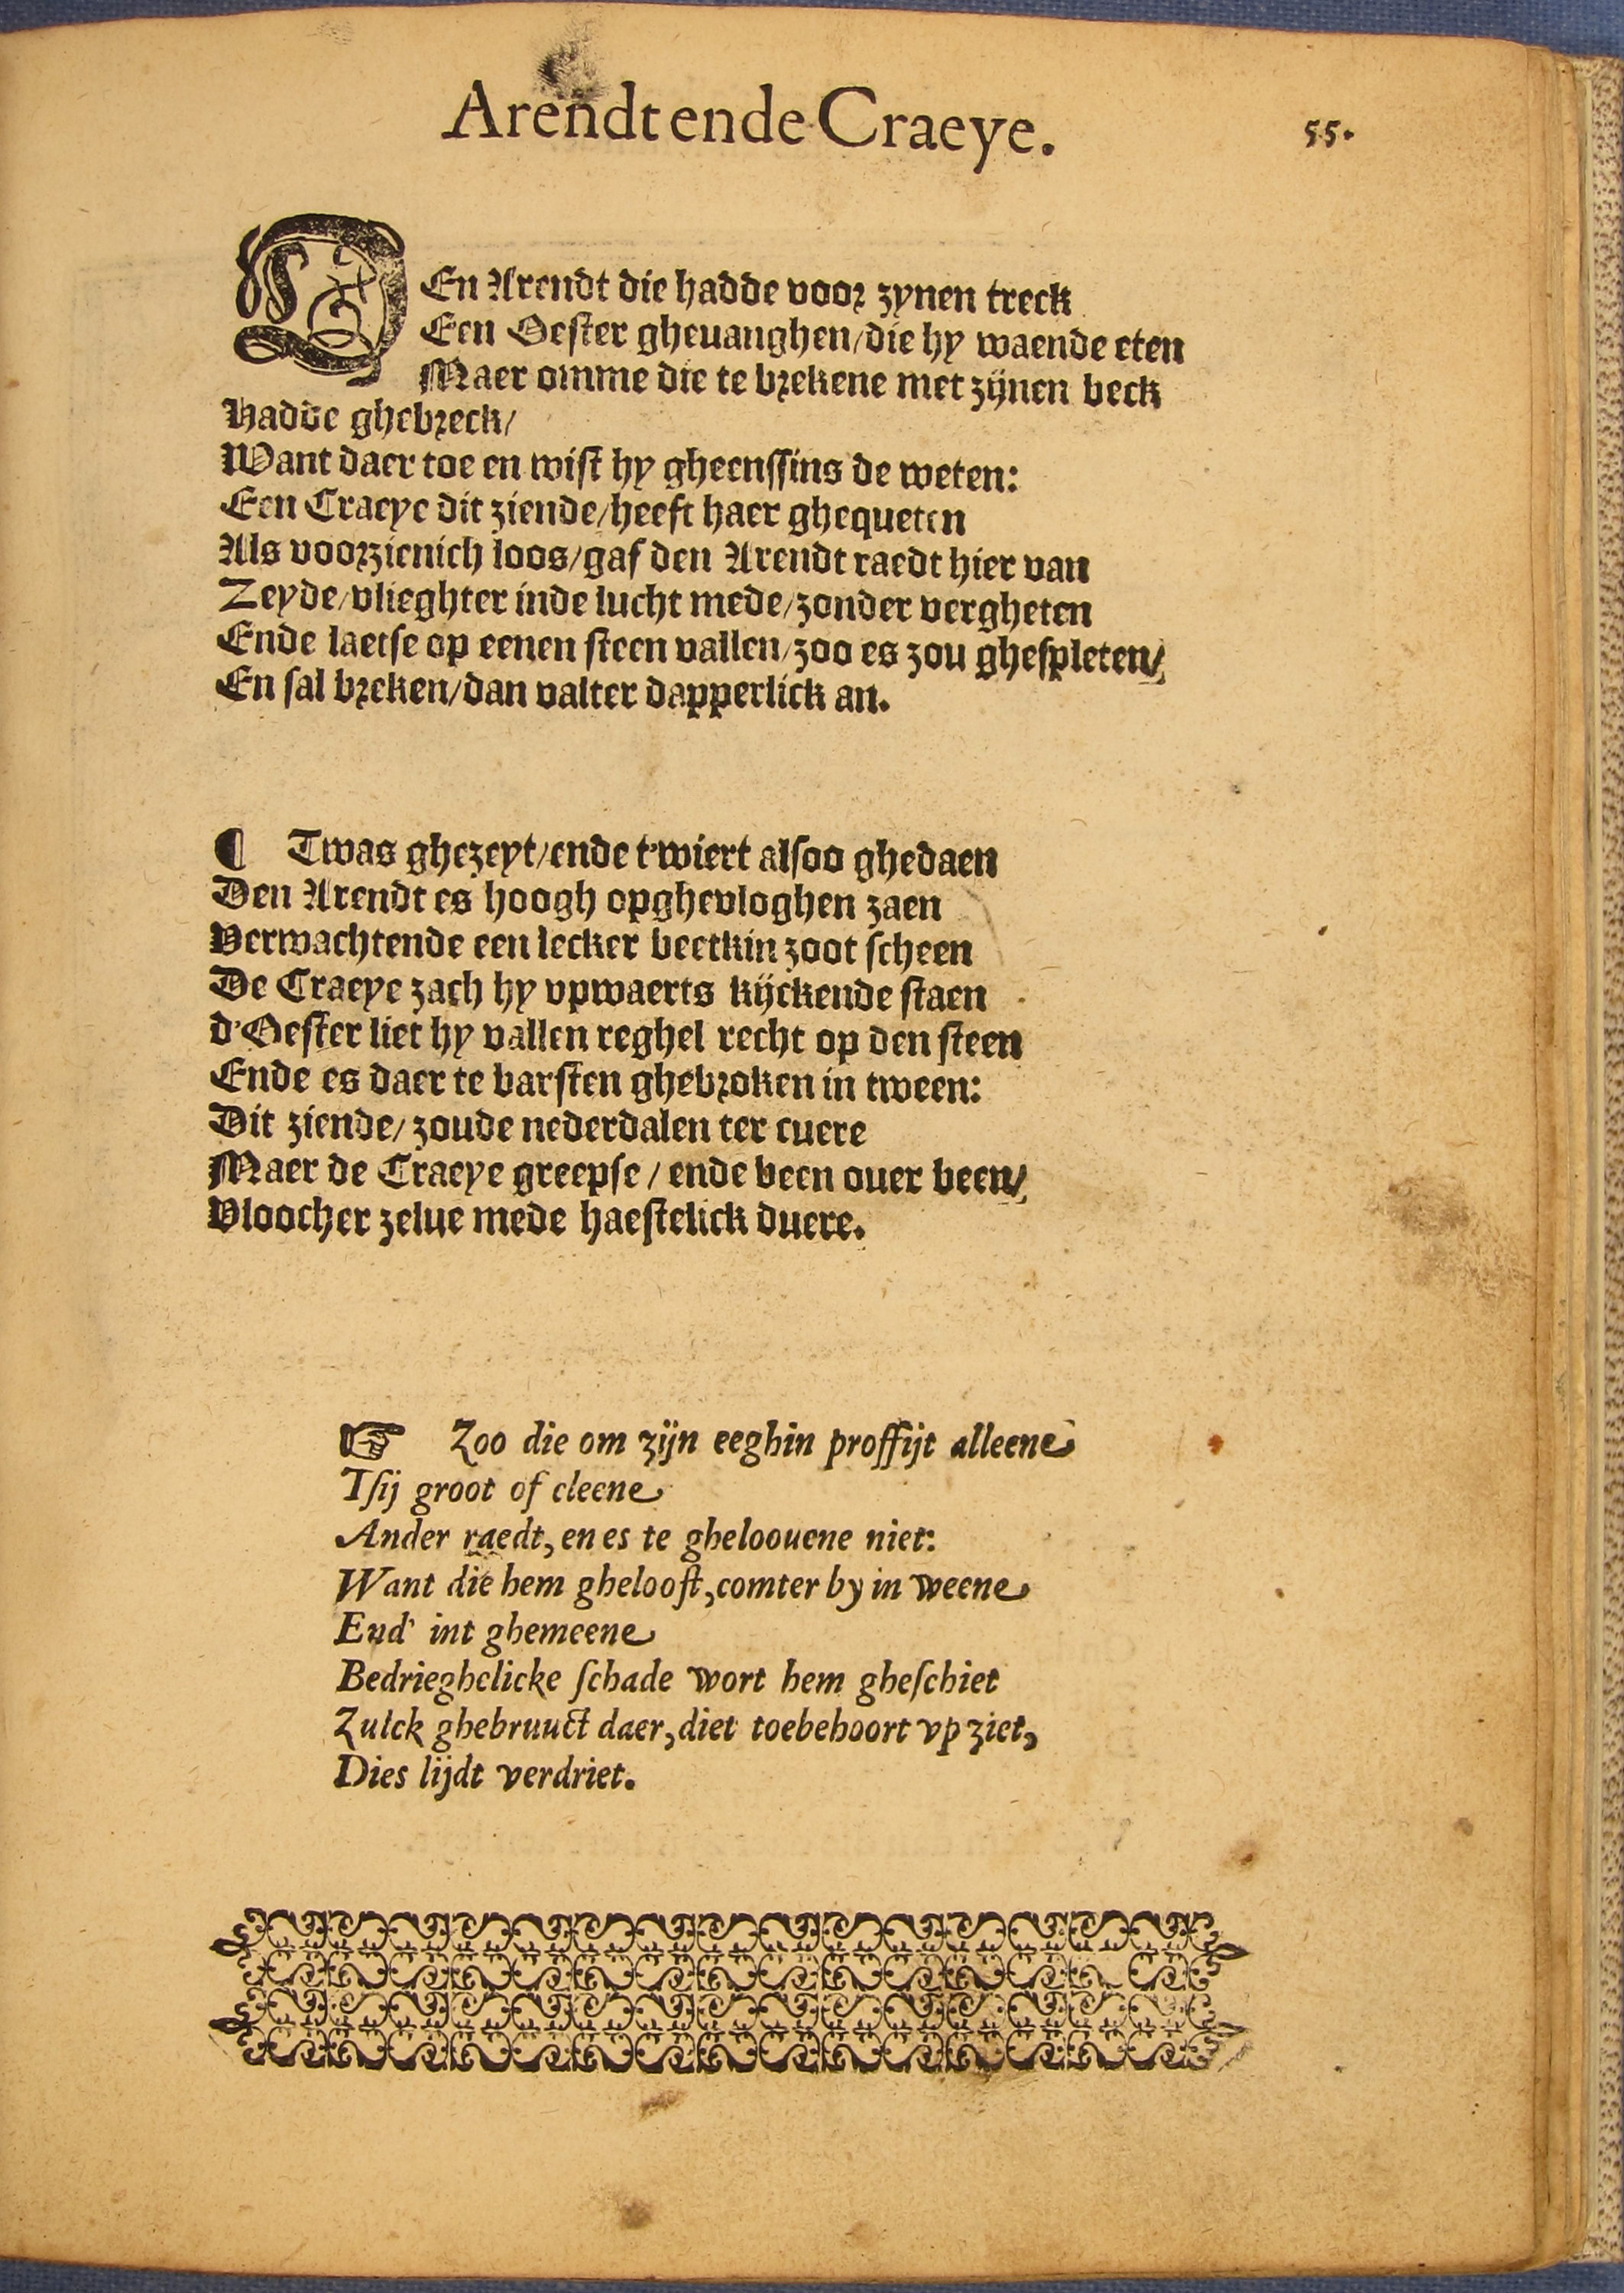 Arendt ende Craeye.
55.
DEn Arendt die hadde voor zynen treck
Een Oester gheuanghen/die hy waende eten
Maer omme die te brekene met zijnen beck
Hadde ghebreck/
Want daer toe en wist hy gheenssins de weten:
Een Craeye dit ziende/heeft haer ghequeten
Als voorzienich loos/gaf den Arendt raedt hier van
Zeyde/vlieghter inde lucht mede/zonder vergheten
Ende laetse op eenen steen vallen/zoo es zou ghespleten/
En sal breken/dan valter dapperlick an.
¶ Twas ghezeyt/ende t'wiert alsoo ghedaen
Den Arendt es hoogh opghevloghen zaen
Verwachtende een lecker beetkin zoot scheen
De Craeye zach hy vpwaerts kijckende staen
d'Oester liet hy vallen reghel recht op den steen
Ende es daer te barsten ghebroken in tween:
Dit ziende/zoude nederdalen ter cuere
Maer de Craeye greepse/ende been ouer been/
Vloocher zelue mede haestelick duere.
☞ Zoo die om zijn eeghin proffijt alleene
Tsij groot of cleene
Ander raedt, en es te gheloouene niet:
Want die hem ghelooft, comter by in weene
End' int ghemeene
Bedrieghelicke schade wort hem gheschiet
Zulck ghebruuct daer, diet toebehoort vp ziet,
Dies lijdt verdriet.